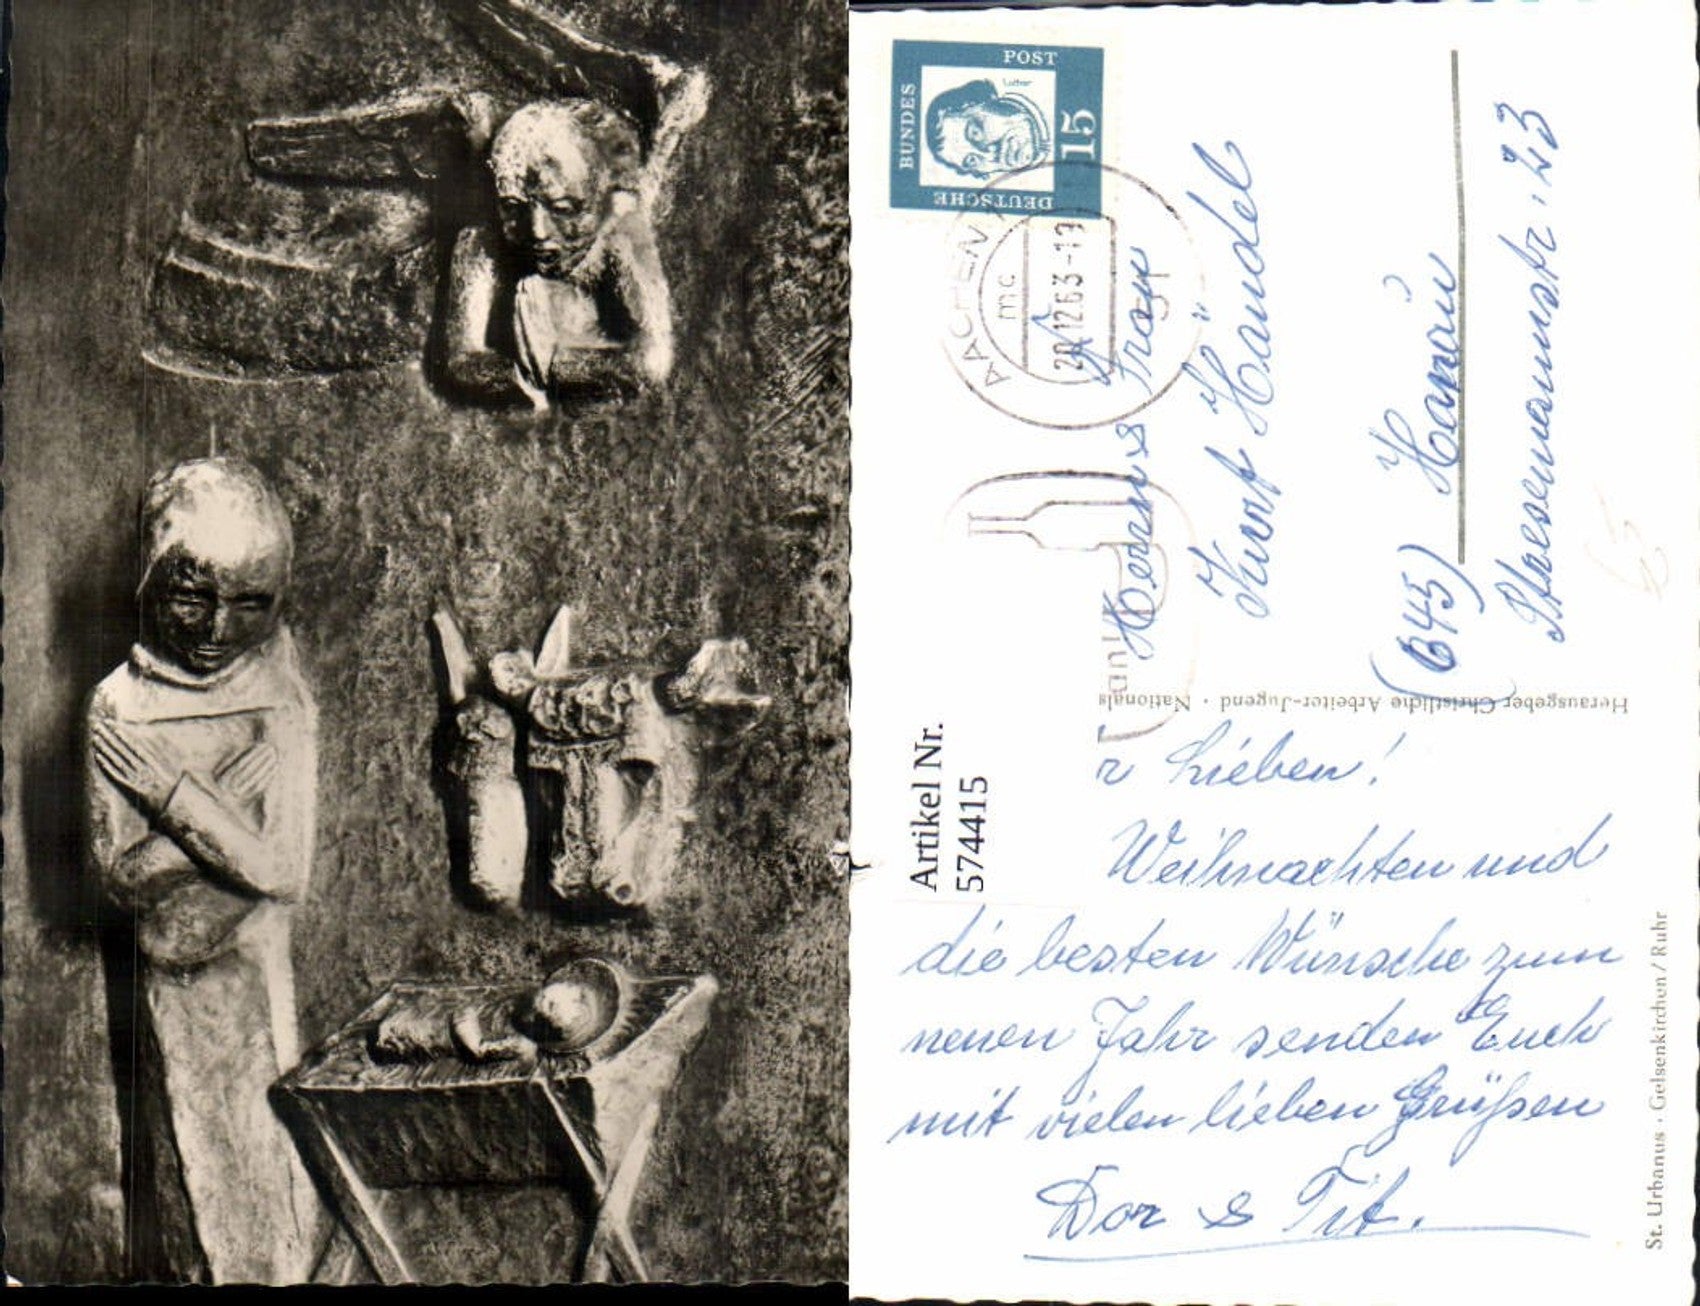 DEUTSCHE
BUNDES
POST
15
Luther
AACHEN
mc
20.12.63-19
Herrn & Frau
Kurt Händel
(645) Hanau
Stresemannstr. 23
Artikel Nr.
574415
Herausgeber Christliche Arbeiter-Jugend · Nationals
Lieben!
Weihnachten und
die besten Wünsche zum
neuen Jahr senden Euch
mit vielen lieben Grüßen
Dor & Tit.
St. Urbanus · Gelsenkirchen / Ruhr